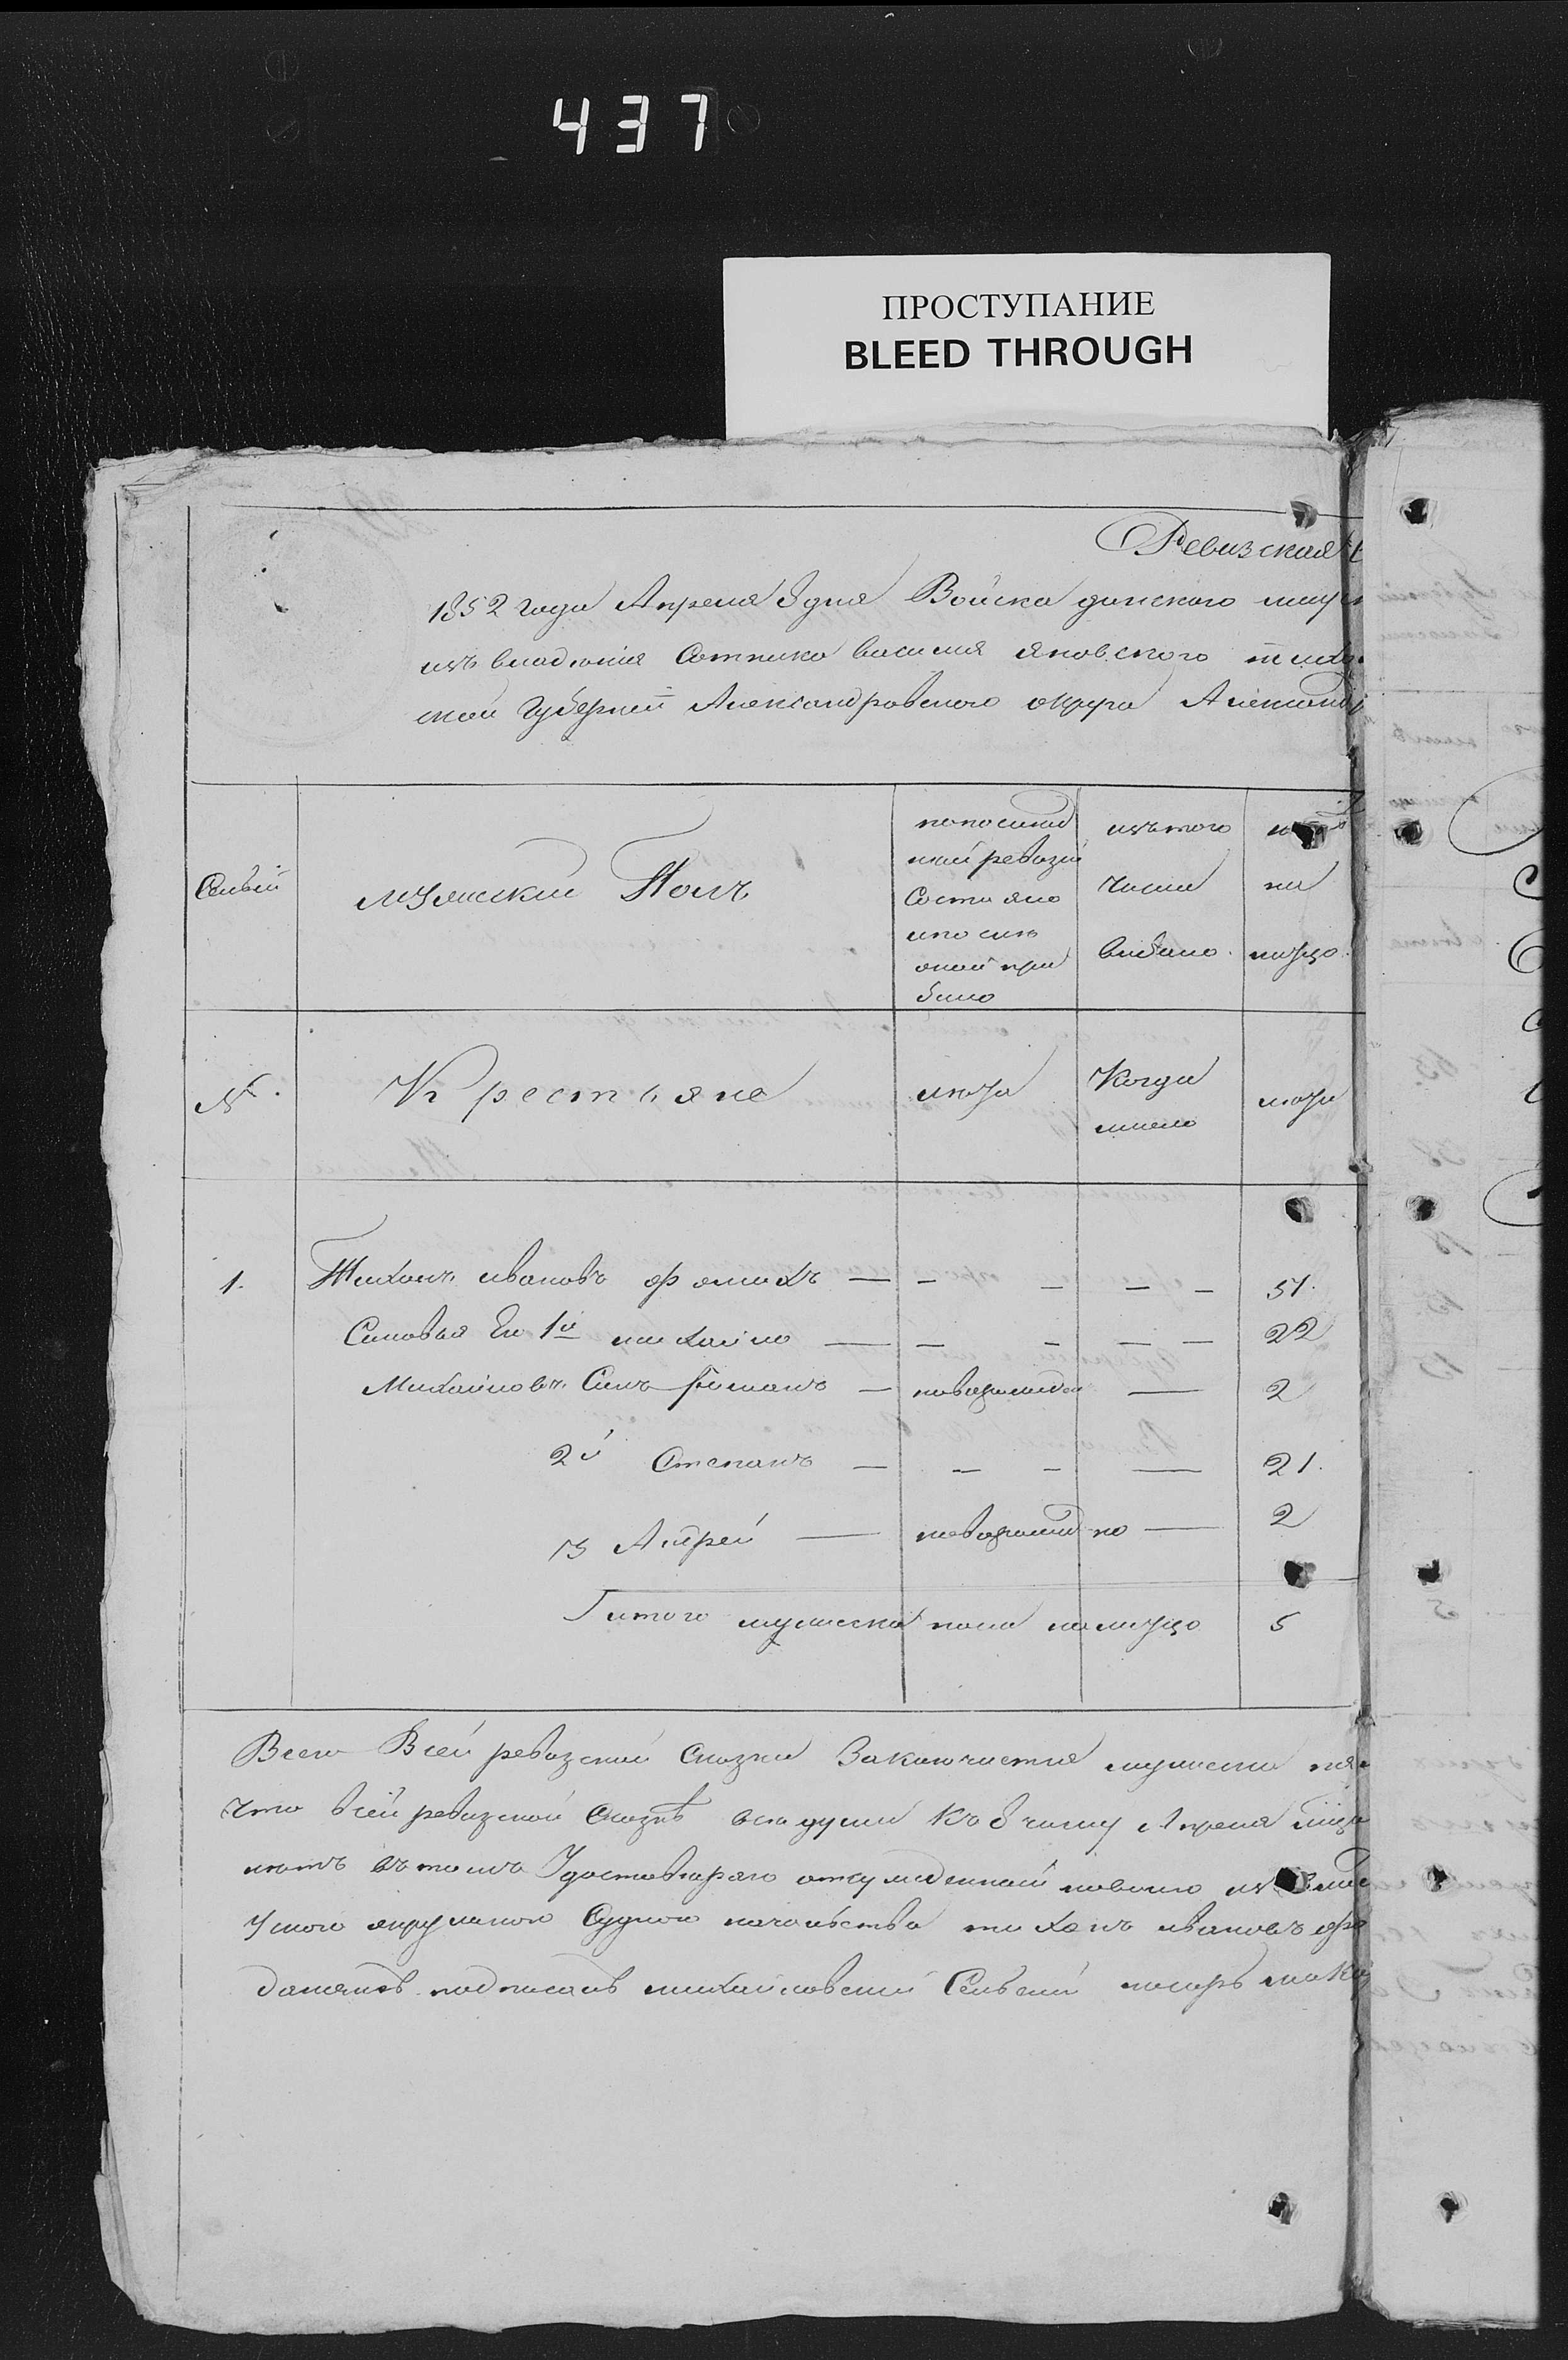 437
ПРОСТУПАНИЕ
BLEED THROUGH
Ревизская
1852 года Апреля 8 дня Войска донского
изъ владѣнія Сотника василия яновского
ской Губерніи Александровского округа Александ
Семьи
мужский Полъ
по послед
ней ревизіи
Состояло
и после
оной при
было
изъ того
числа
выбыло.
на
лицо.
№.
Крестьяне
лета
Когда
имено
лета
1. Тихонъ ивановъ фоминъ — — — — — 51.
Сыновья Ево 1й михайло — — — — — 22
Михайловъ Сынъ Романъ — новорожден — 2
2й Степанъ — — — — 21.
3 Андрей — новорожденно — 2
Итого мужеска пола налицо 5
Всего Всей ревизской Сказки Заключается мужеска
Что всей ревизской Сказкѣ все души Къ 8 числу Апреля
нѣтъ въ томъ Удостоверяю
окружного Судного начальства тихонъ ивановъ
подписалъ михайловский Сельский писарь